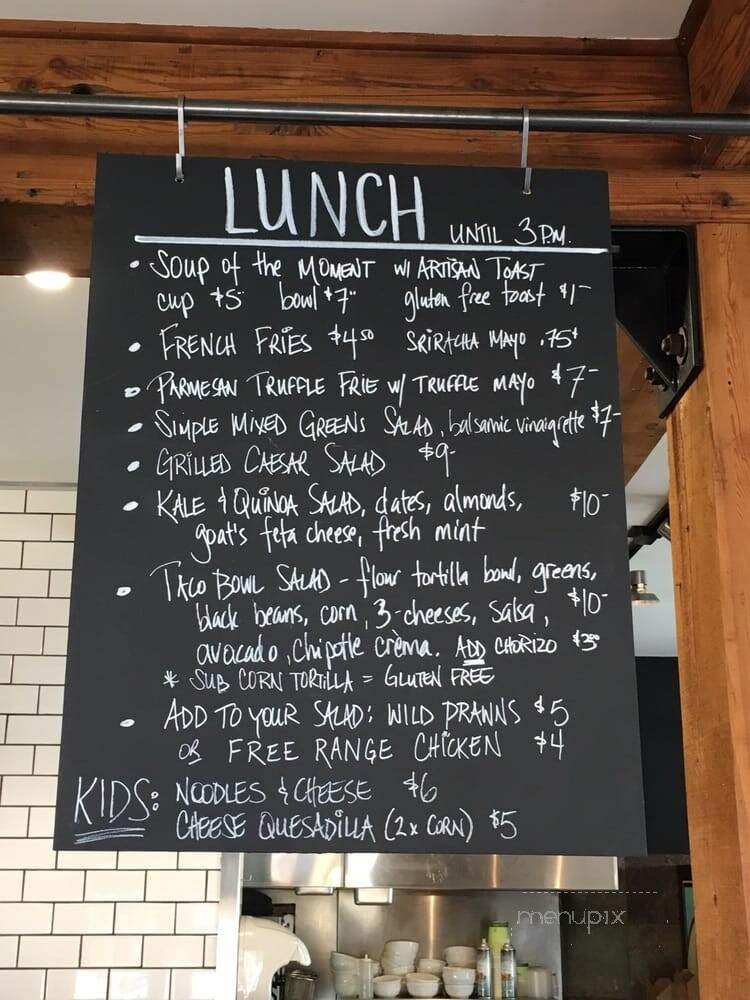 LUNCH UNTIL 3 P.M.
• SOUP OF the MOMENT W/ ARTISAN TOAST
cup $5 bowl $7 gluten free toast $1
• FRENCH FRIES $4.50 SRIRACHA MAYO .75¢
• PARMESAN TRUFFLE FRIE W/ TRUFFLE MAYO $7-
• SIMPLE MIXED GREENS SALAD, balsamic vinaigrette $7-
• GRILLED CAESAR SALAD $9-
• KALE & QUINOA SALAD, dates, almonds, $10-
goat's feta cheese, fresh mint
• TACO BOWL SALAD - flour tortilla bowl, greens,
black beans, corn, 3-cheeses, salsa, $10-
avocado, chipotle crèma. ADD CHORIZO
* SUB CORN TORTILLA = GLUTEN FREE
• ADD TO YOUR SALAD: WILD PRAWNS $5
OR FREE RANGE CHICKEN $4
KIDS: NOODLES & CHEESE $6
CHEESE QUESADILLA (2x CORN) $5
menupix